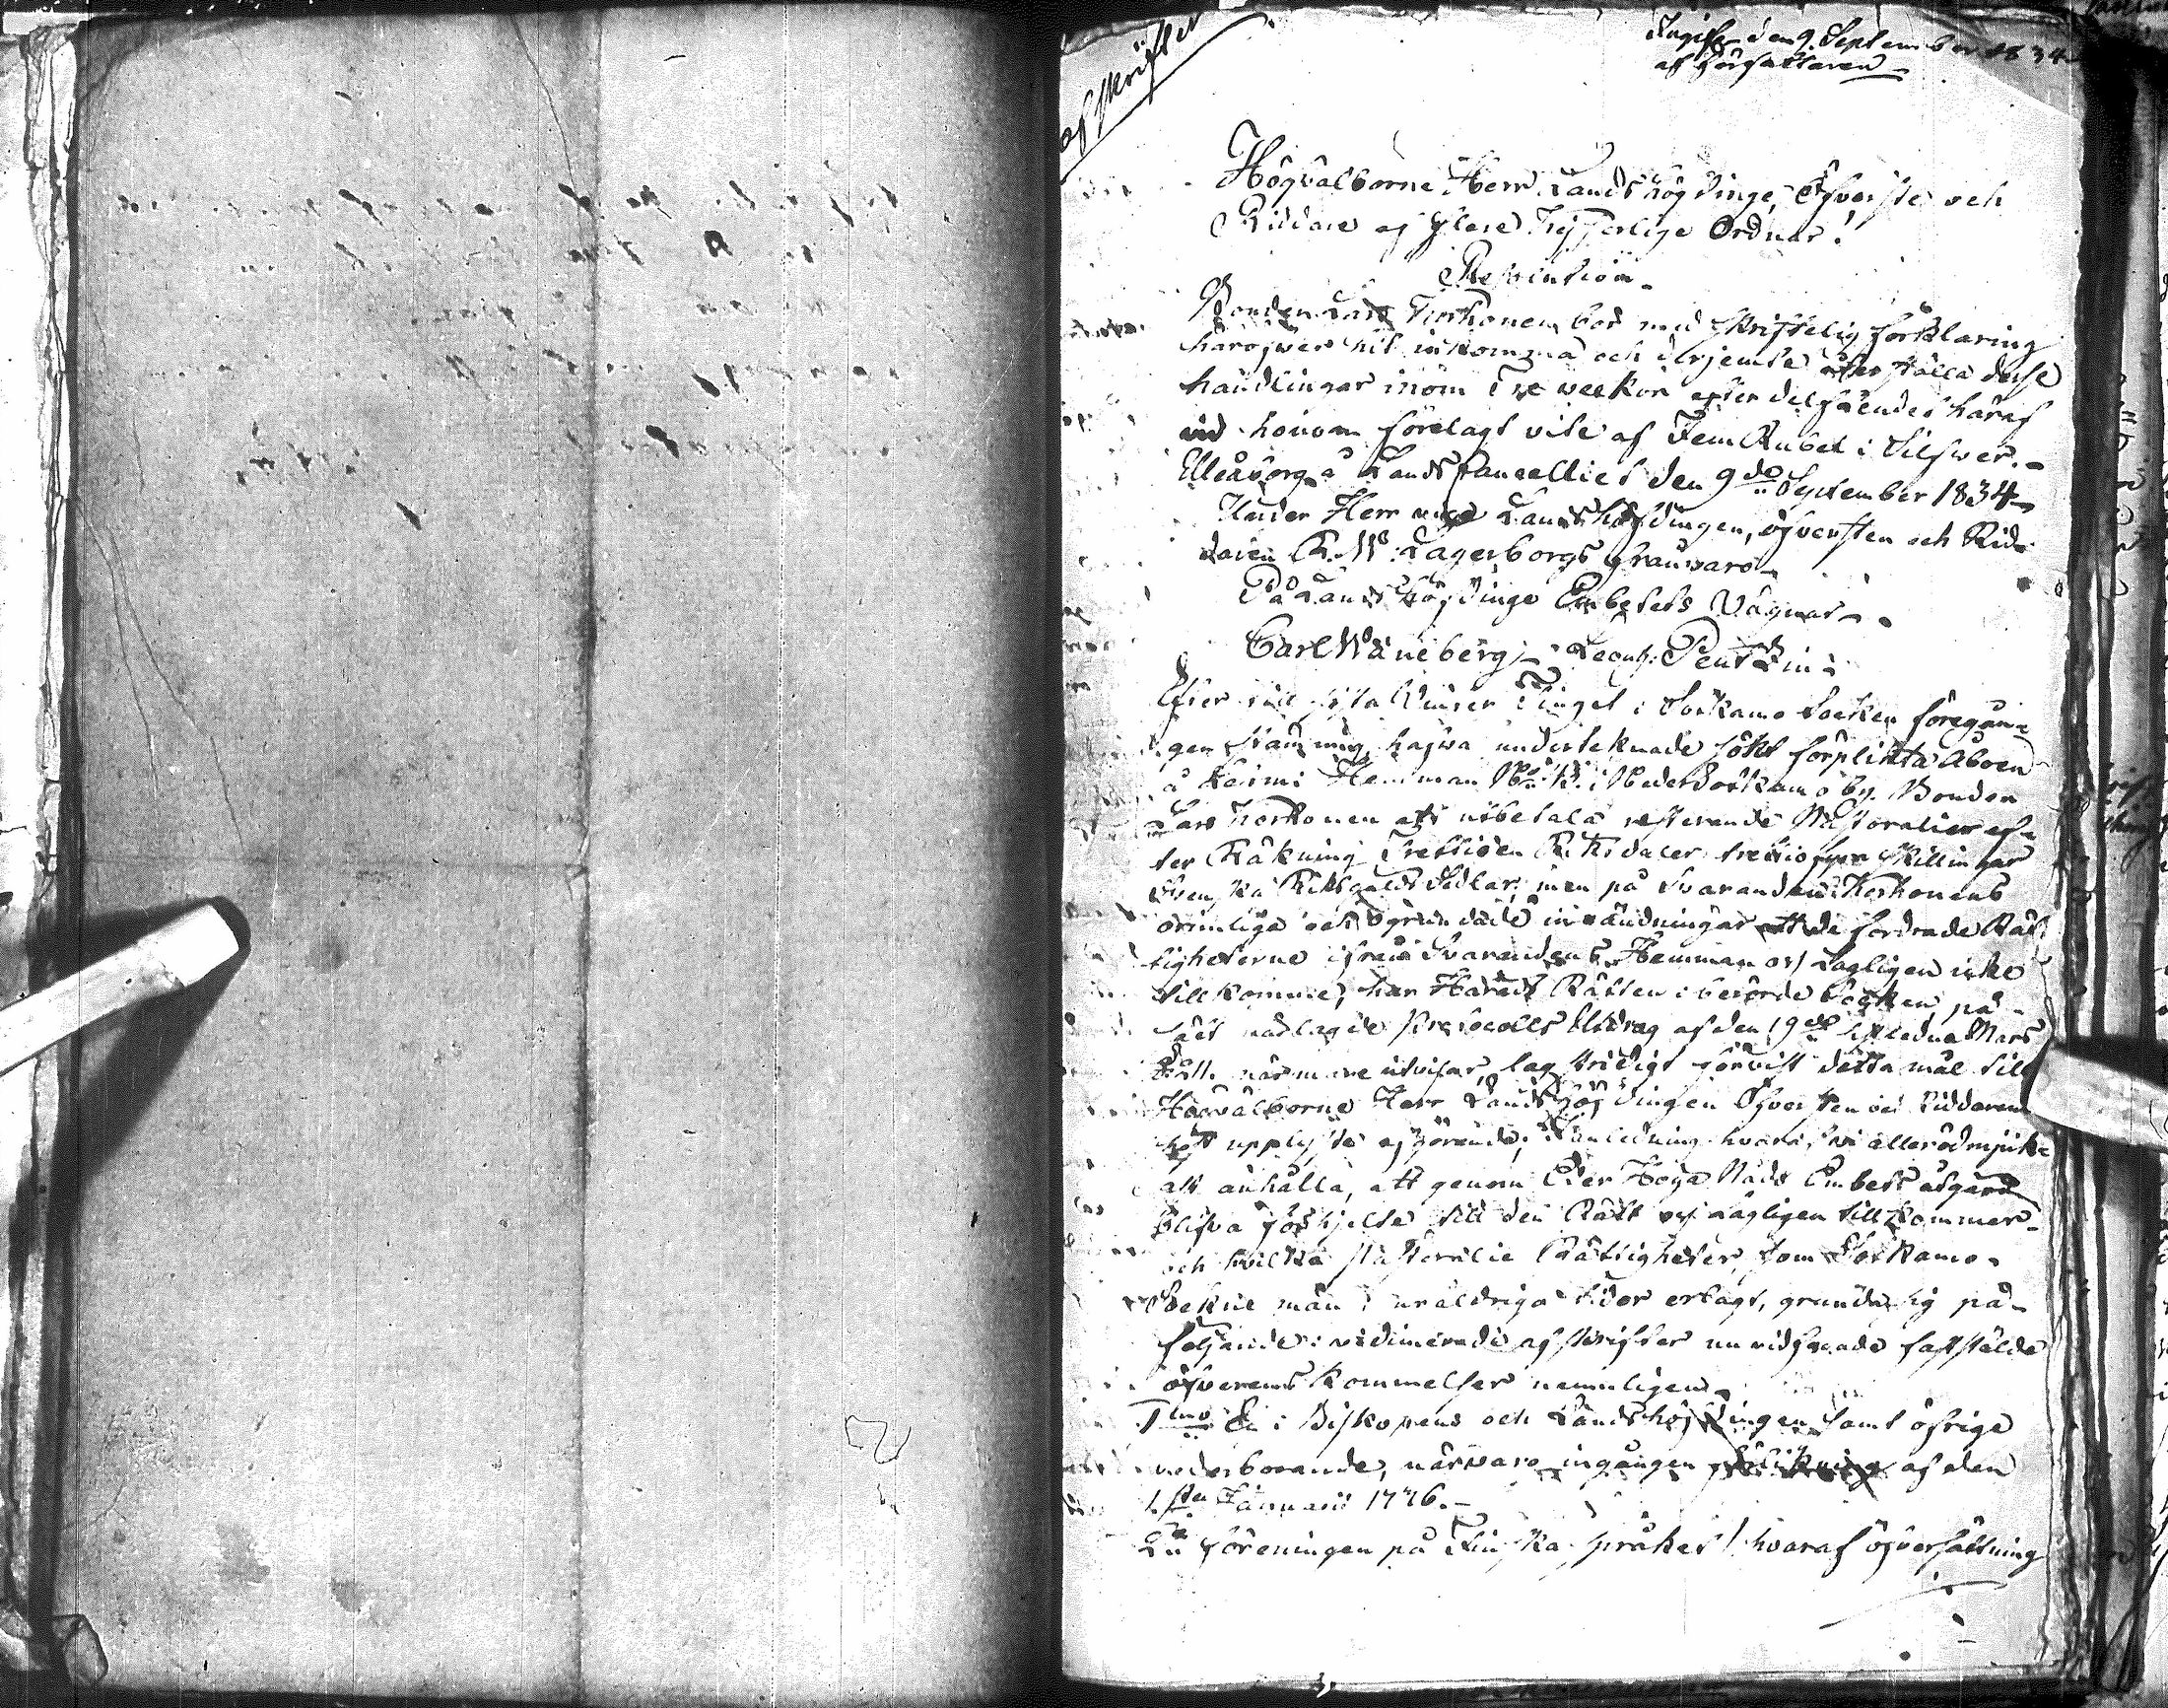 afskrifter
Ingifn den 9. September 1834
af författaren
Högvälborne Herr Landshöfdinge, Öfverste och
Riddare af flere Kejserlige Ordnar!
Resolution
Bonden Lars Korhonen bör med skriftelig förklaring
häröfver hit inkomma och derjemte återställa desse
handlingar inom Tre veckor efter delfåendet häraf
vid honom förelagt vite af Fem Rubel i Silfwer.
Uleåborg å Lands Cancelliet den 9de September 1834
Under Herr Landshöfdingen, öfversten och Rid-
daren R. W. Lagerborgs frånvaro
På Landshöfdinge Embetets Vägnar
Carl Wäneberg Leonh: Pentzin
Efter vid sista Vinter Tinget i Sotkamo Socken föregån-
gen stämning, hafva undertecknade sökt förplikta Åboen
å Hemman No i Neder Sotkamo by. Bonden
Lars Korhonen att utbetala resterande Pastoralier ef-
ter Räkning Trettioen Riksdaler trettiofyra Skillingar
Svenska Riksgälds Sedlar; men på Svaranden Korhonens
orimliga och ogrundade invändningar att de fordrade Rät-
tigheterne ifrån Svarandens Hemman oss Lagligen icke
tillkomme, har Härads Rätten i berörde Socken, på
sätt närlagde Protocolls Utdrag af den 19de sistledne Mars
närmare utvisar, lagstridigt förvist detta mål till
Högvälborne Herr Landshöfdingen Öfversten och Riddarens
högt upplyste afgörande; i anledning hvaraf vi allerödmjuk-
ast anhålla, att genom Eder Höga Nåds Embets åtgärd
blifva förhjelte till den Rätt oss lagligen tillkommer
och hvilka Pastoralie Rättigheter, som Sotkamo
Sockne män i uråldriga tider erlagt, grunda sig på
följande i vidimerade afskrifter nu vidfogade fastställde
öfverenskommelser nemnligen
1mo En i Biskopens och Landshöfdingen samt öfrige
vederborande, närvaro ingången af den
1sta Januarii 1776.
En föreningen på Finska språket hvaraf öfversättning